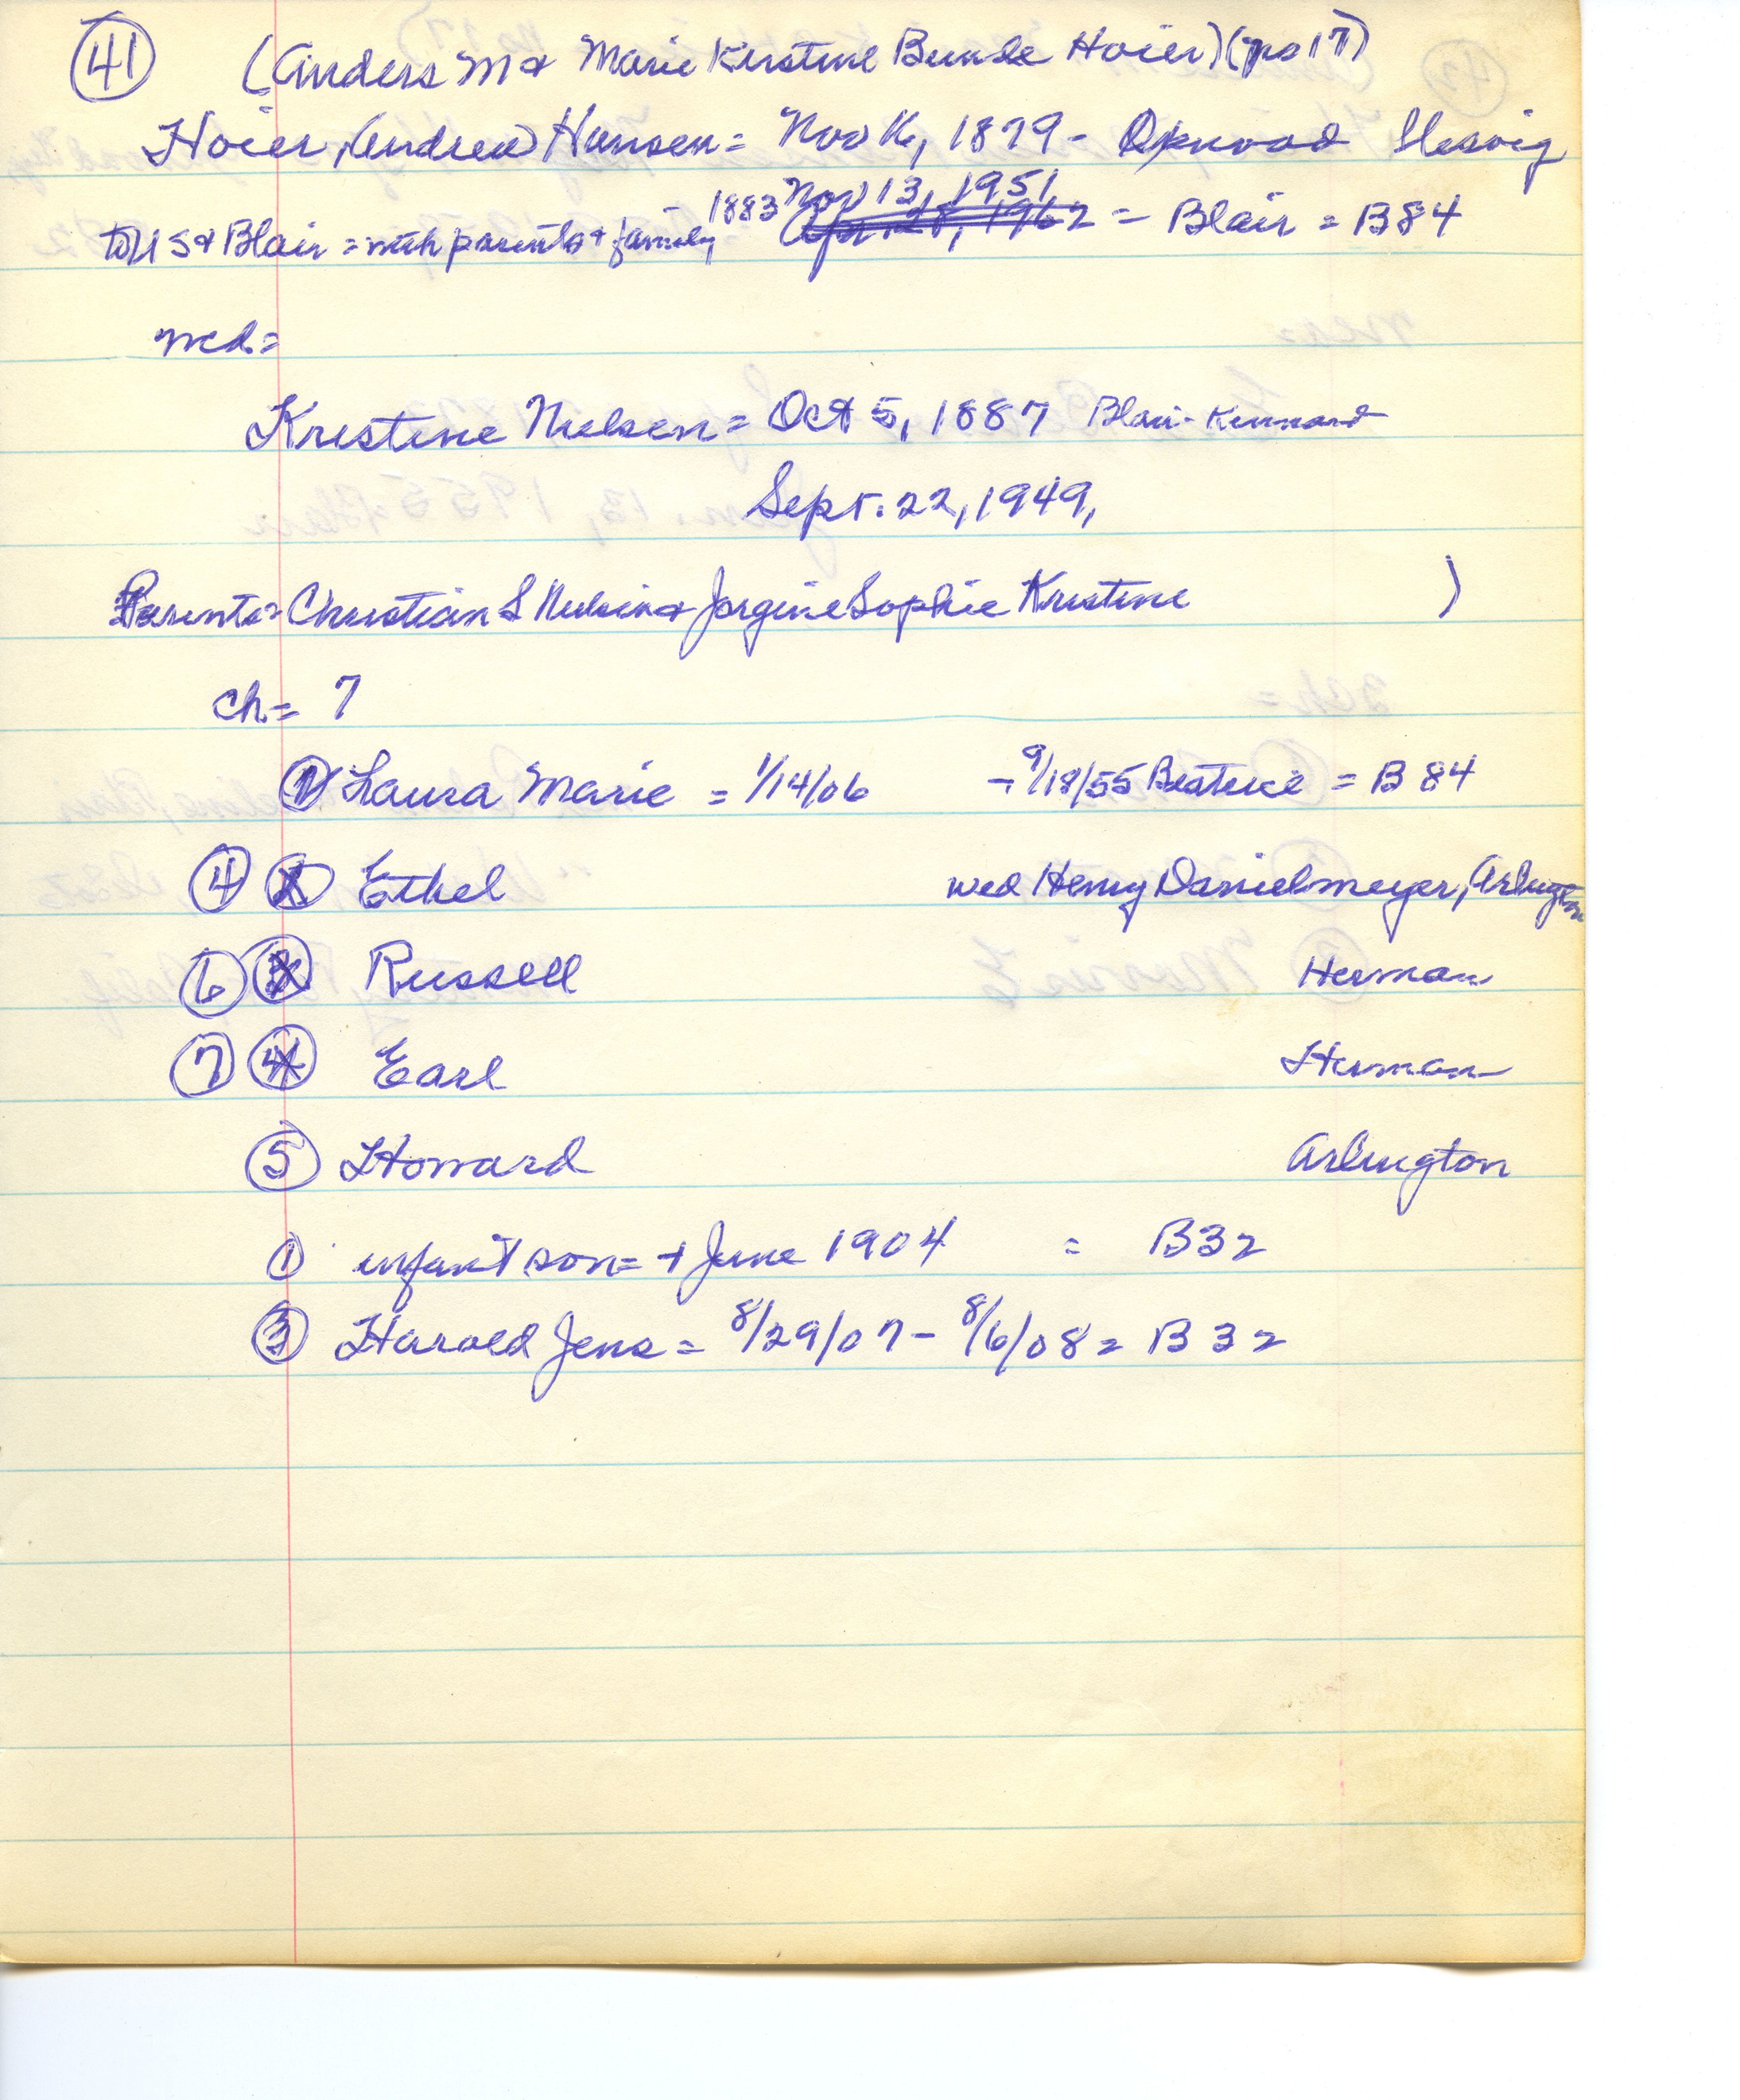 41 (Anders M & Marie Kirstine Bunde Hoier) (no 17)
Hoier, (Andrew) Hansen = Nov 16, 1879 - Slesvig
to US & Blair = with parents & family, 1883 - Nov 13, 1951
Apr 28, 1962 = Blair = B84
wed =
Kristine Nielsen = Oct 5, 1887 Blair - Kennard
Sept. 22, 1949,
Parents = Christian S Nielsen & Jorgine Sophie Kristine )
ch = 7
Laura Marie = 1/14/06 - 9/18/55 Beatrice = B 84
4 Ethel wed Henry Danielmeyer, Arlington
6 Russell Herman
7 4 Earl Herman
5 Howard Arlington
1 infant son = + June 1904 = B32
3 Harold Jens = 8/29/07 - 8/6/08 = B 32